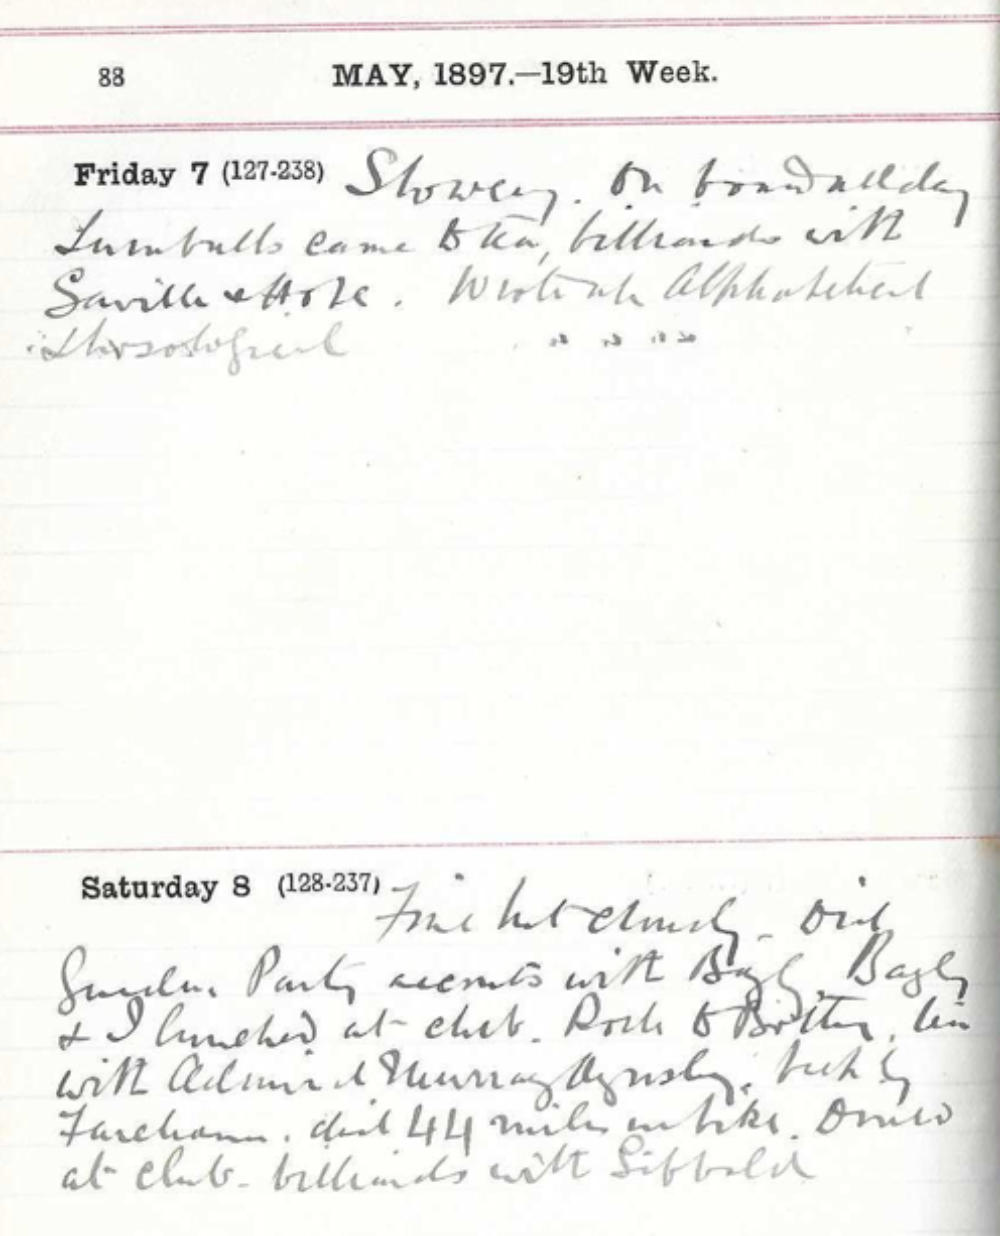 88 MAY, 1897.—19th Week.
Friday 7 (127-238) Showery. On board all day
Turnbulls came to tea, billiards with
Saville & Hole. Wrote up Alphabetical
Saturday 8 (128-237) Fine but cloudy. Did
Garden Party accounts with Bayly. Bayly
& I lunched at club. Rode to Botley, tea
with Admiral Murray Aynsley, back by
Fareham. did 44 miles on bike. Dined
at club - billiards with Sibbald